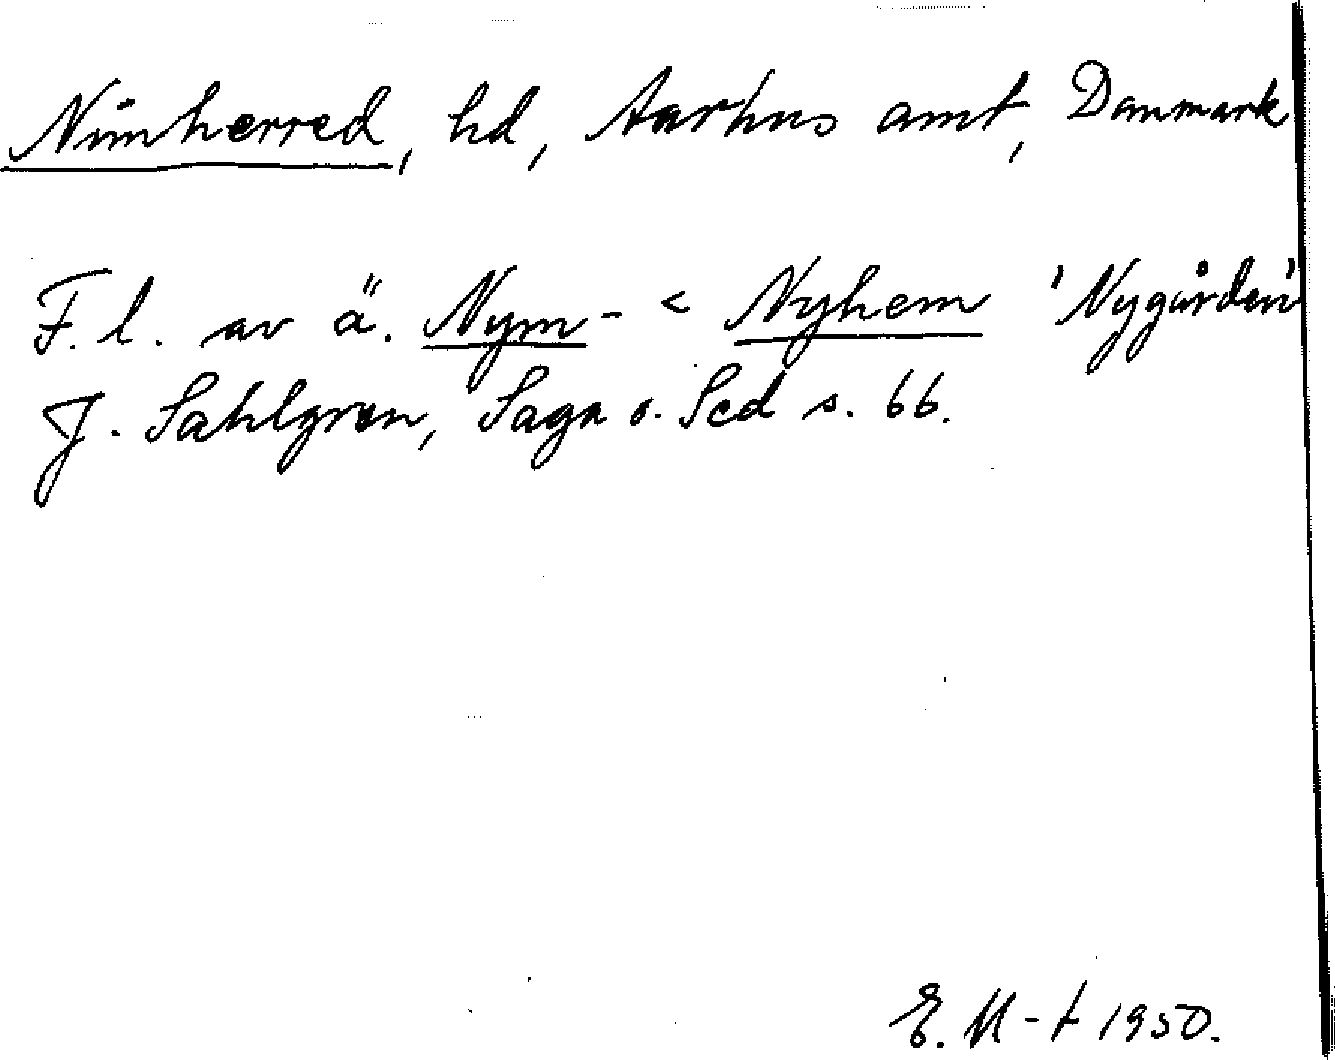 Nimherred, hd, Aarhus amt, Danmark
F. l. av ä. Nym- < Nyhem 'Nygården'
J. Sahlgren, Saga o. Sed s. 66.
E. M-t 1950.